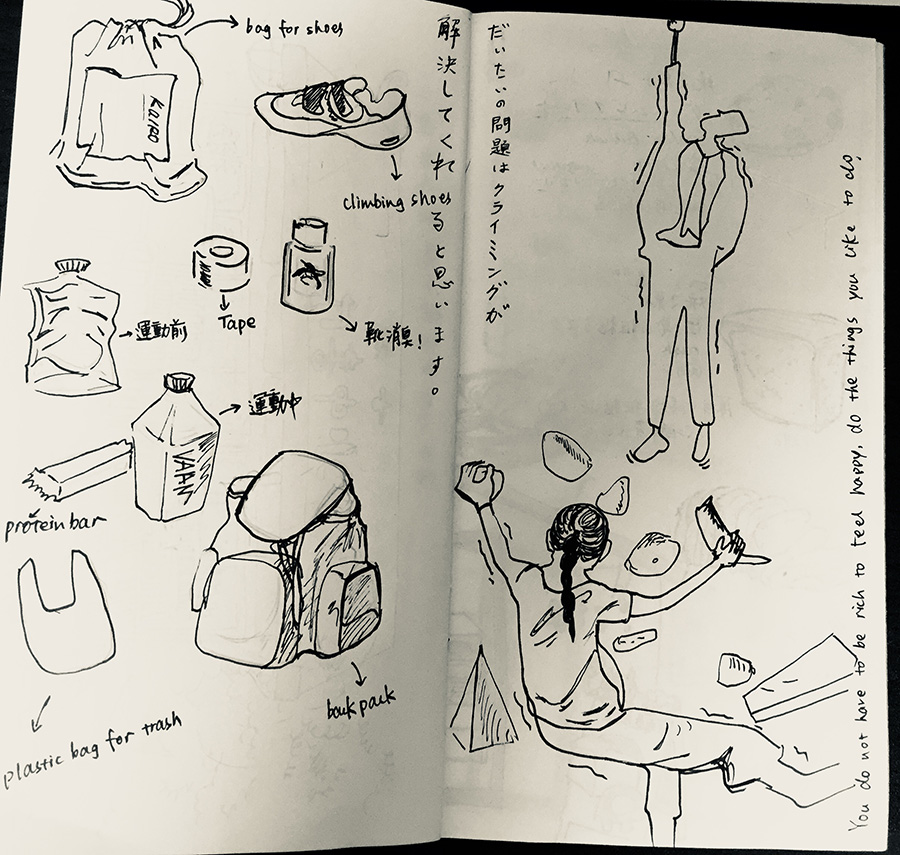 bag for shoes
climbing shoes
Tape
靴消臭!
運動前
運動中
VAAM
protein bar
back pack
plastic bag for trash
だいたいの問題はクライミングが
解決してくれると思います。
You do not have to be rich to feel happy, do the things you like to do,